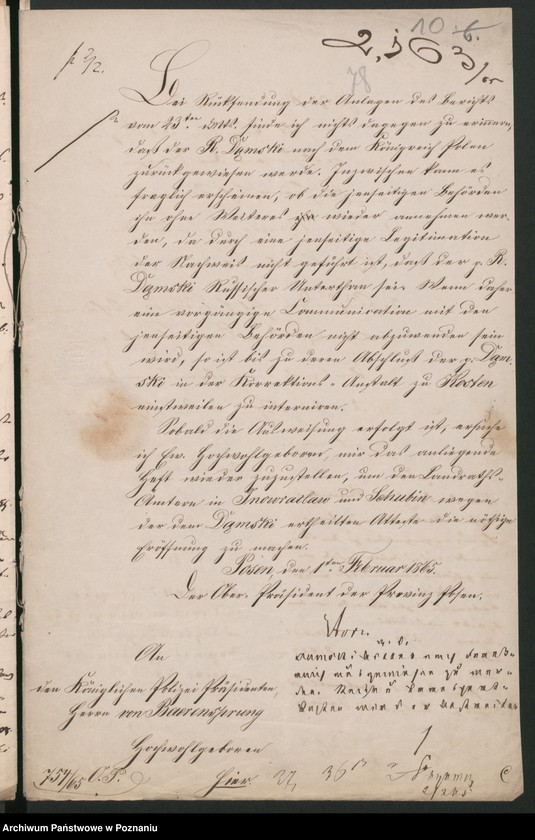 10
2,563/65
78
p 2/2.
Bei Rücksendung der Anlagen des Berichts
vom 23ten d. Mts. finde ich nichts dagegen zu erinnern,
daß der R. Dąmski nach dem Königreich Polen
zurückgewiesen werde. Inzwischen kann es
fraglich erscheinen, ob die jenseitigen Behörden
ihn ohne Weiteres wieder annehmen wer-
den, da durch eine jenseitige Legitimation
der Nachweis nicht geführt ist, daß der p. R.
Dąmski Russischer Unterthan sei. Wenn daher
eine vorgängige Communication mit den
jenseitigen Behörden nicht abzuwenden sein
wird, so ist bis zu deren Abschluß der p. Dąm-
ski in der Korrektions-Anstalt zu Kosten
einstweilen zu interniren.
Sobald die Ausweisung erfolgt ist, ersuche
ich Ew. Hochwohlgeboren, mir das anliegende
Heft wieder zuzustellen, um den Landraths-
Aemtern in Inowraclaw und Schubin wegen
der dem Dąmski ertheilten Atteste die nöthige
Eröffnung zu machen.
Posen, den 1ten Februar 1865.
Der Ober-Präsident der Provinz Posen.
An
den Königlichen Polizei Präsidenten,
Herrn von Baerensprung
Hochwohlgeboren
Hier
754/65 O.P.
27,
Archiwum Państwowe w Poznaniu